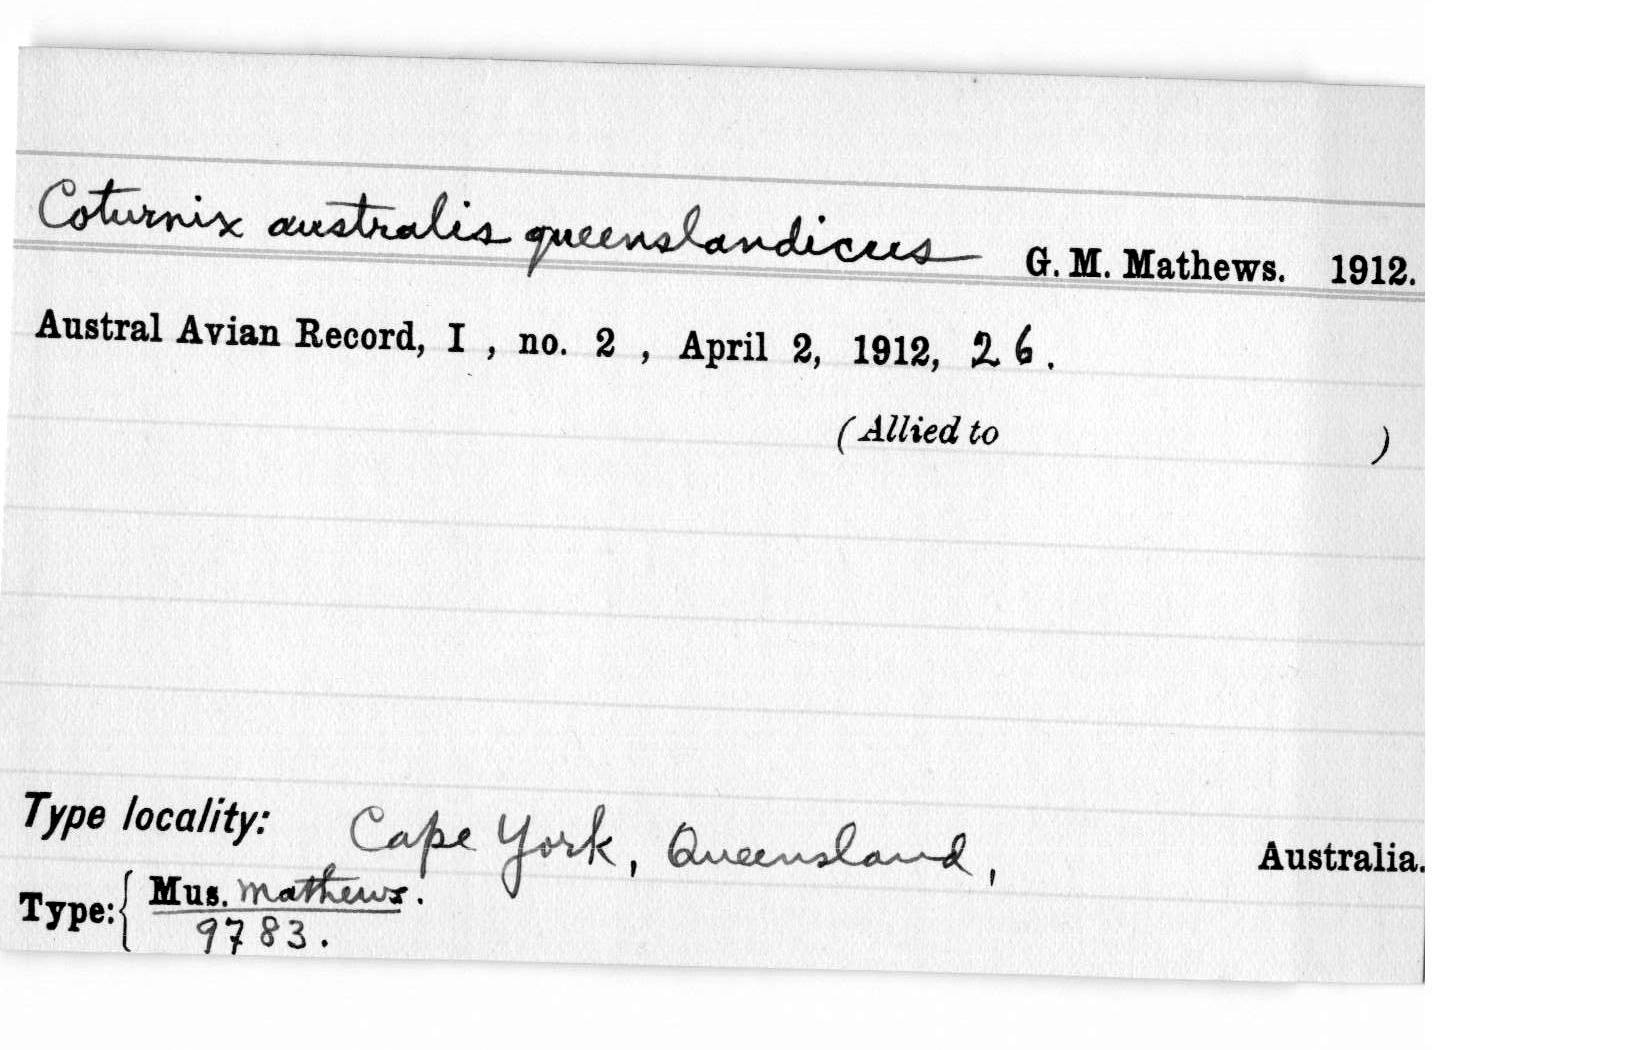 Coturnix australis queenslandicus G. M. Mathews. 1912.
Austral Avian Record, I , no. 2 , April 2, 1912, 26.
(Allied to )
Type locality: Cape York, Queensland, Australia.
Type: { Mus. Mathews.
9783.